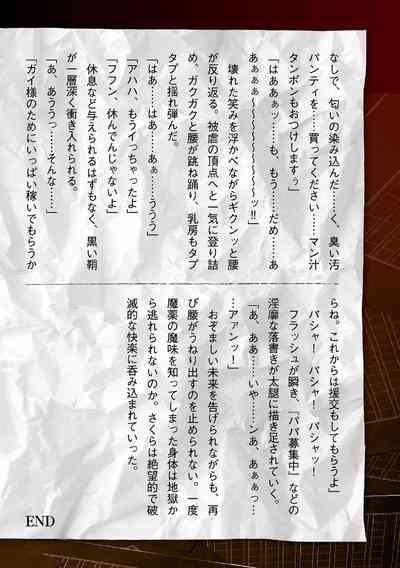 なしで、匂いの染み込んだ……く、臭い汚
パンティを……買ってください……マン汁
タンポンもおつけしますぅ」
「はああぁッ……も、もう……だめ……あ
あぁぁぁ～～～～～～～～～ッ!!」
　壊れた笑みを浮かべながらギクンッと腰
が反り返る。被虐の頂点へと一気に登り詰
め、ガクガクと腰が跳ね踊り、乳房もタプ
タプと揺れ弾んだ。
「はぁ……はぁ……あぁ……ううう」
「アハハ、もうイっちゃったよ」
「フフン、休んでんじゃないよ」
　休息など与えられるはずもなく、黒い鞘
が一層深く衝き入れられる。
「あ、あううっ……そんな……」
「ガイ様のためにいっぱい稼いでもらうか
らね。これからは援交もしてもらうよ」
　バシャ！　バシャ！　バシャッ！
　フラッシュが瞬き、「パパ募集中」などの
淫靡な落書きが太腿に描き足されていく。
「あ、ああ……いや……ンあ、あぁぁっ…
…アァンッ！」
　おぞましい未来を告げられながらも、再
び腰がうねり出すのを止められない。一度
魔薬の魔味を知ってしまった身体は地獄か
ら逃れられないのか。さくらは絶望的で破
滅的な快楽に呑み込まれていった。
END